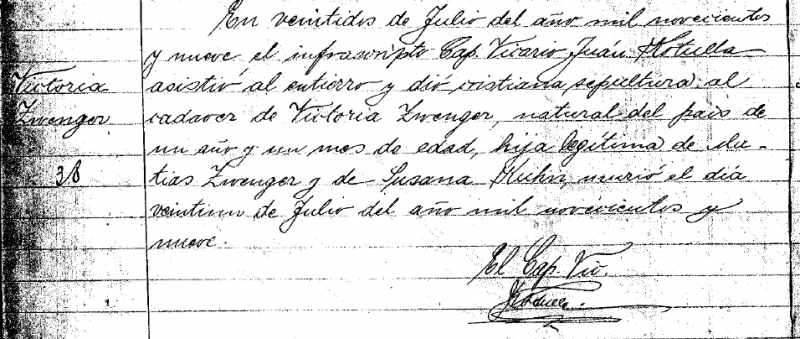 En veintidos de Julio del año mil novecientos
y nueve el infrascripto Cap. Vicario Juán Kotulla
Victoria
asistió al entierro y dió cristiana sepultura al
Zwenger
cadaver de Victoria Zwenger, natural del pais de
un año y un mes de edad, hija legítima de Ma-
38
tias Zwenger y de Susana Kuhn, murió el dia
veintiun de Julio del año mil novecientos y
nueve.
El Cap. Vic.